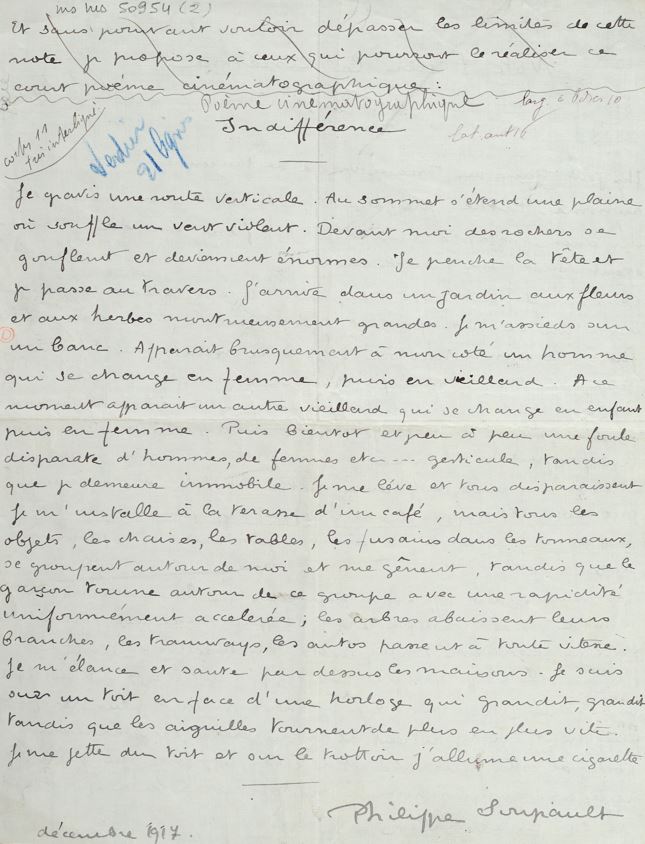 ms nus 50954 (2)
Et sans pourtant vouloir dépasser les limites de cette
note je propose à ceux qui pourront le réaliser ce
court poème cinématographique :
Poème cinématographique
Indifférence
corps 11
très interligné
Je gravis une route verticale. Au sommet s'étend une plaine
où souffle un vent violent. Devant moi des rochers se
gonflent et deviennent énormes. Je penche la tête et
je passe au travers. J'arrive dans un jardin aux fleurs
et aux herbes monstrueusement grandes. Je m'assieds sur
un banc. Apparait brusquement à mon coté un homme
qui se change en femme, puis en vieillard. A ce
moment apparait un autre vieillard qui se change en enfant
puis en femme. Puis bientot et peu à peu une foule
disparate d'hommes, de femmes etc --- gesticule, tandis
que je demeure immobile. Je me lève et tous disparaissent
Je m'installe à la terasse d'un café, mais tous les
objets, les chaises, les tables, les fusains dans les tonneaux,
se groupent autour de moi et me gênent, tandis que le
garçon tourne autour de ce groupe avec une rapidité
uniformément accelerée; les arbres abaissent leurs
branches, les tramways, les autos passent à toute vitesse.
Je m'élance et saute par dessus les maisons. Je suis
sur un toit en face d'une horloge qui grandit, grandit
tandis que les aiguilles tournent de plus en plus vite.
Je me jette du toit et sur le trottoir j'allume une cigarette
Philippe Soupault
décembre 1917.